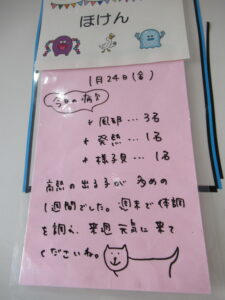 ほけん
1月24日(金)
今日の病欠
＋ 風邪…3名
＋ 発熱…1名
＋ 様子見…1名
高熱の出る子が多めの
1週間でした。週末で体調
を調え、来週元気に来て
くださいね。